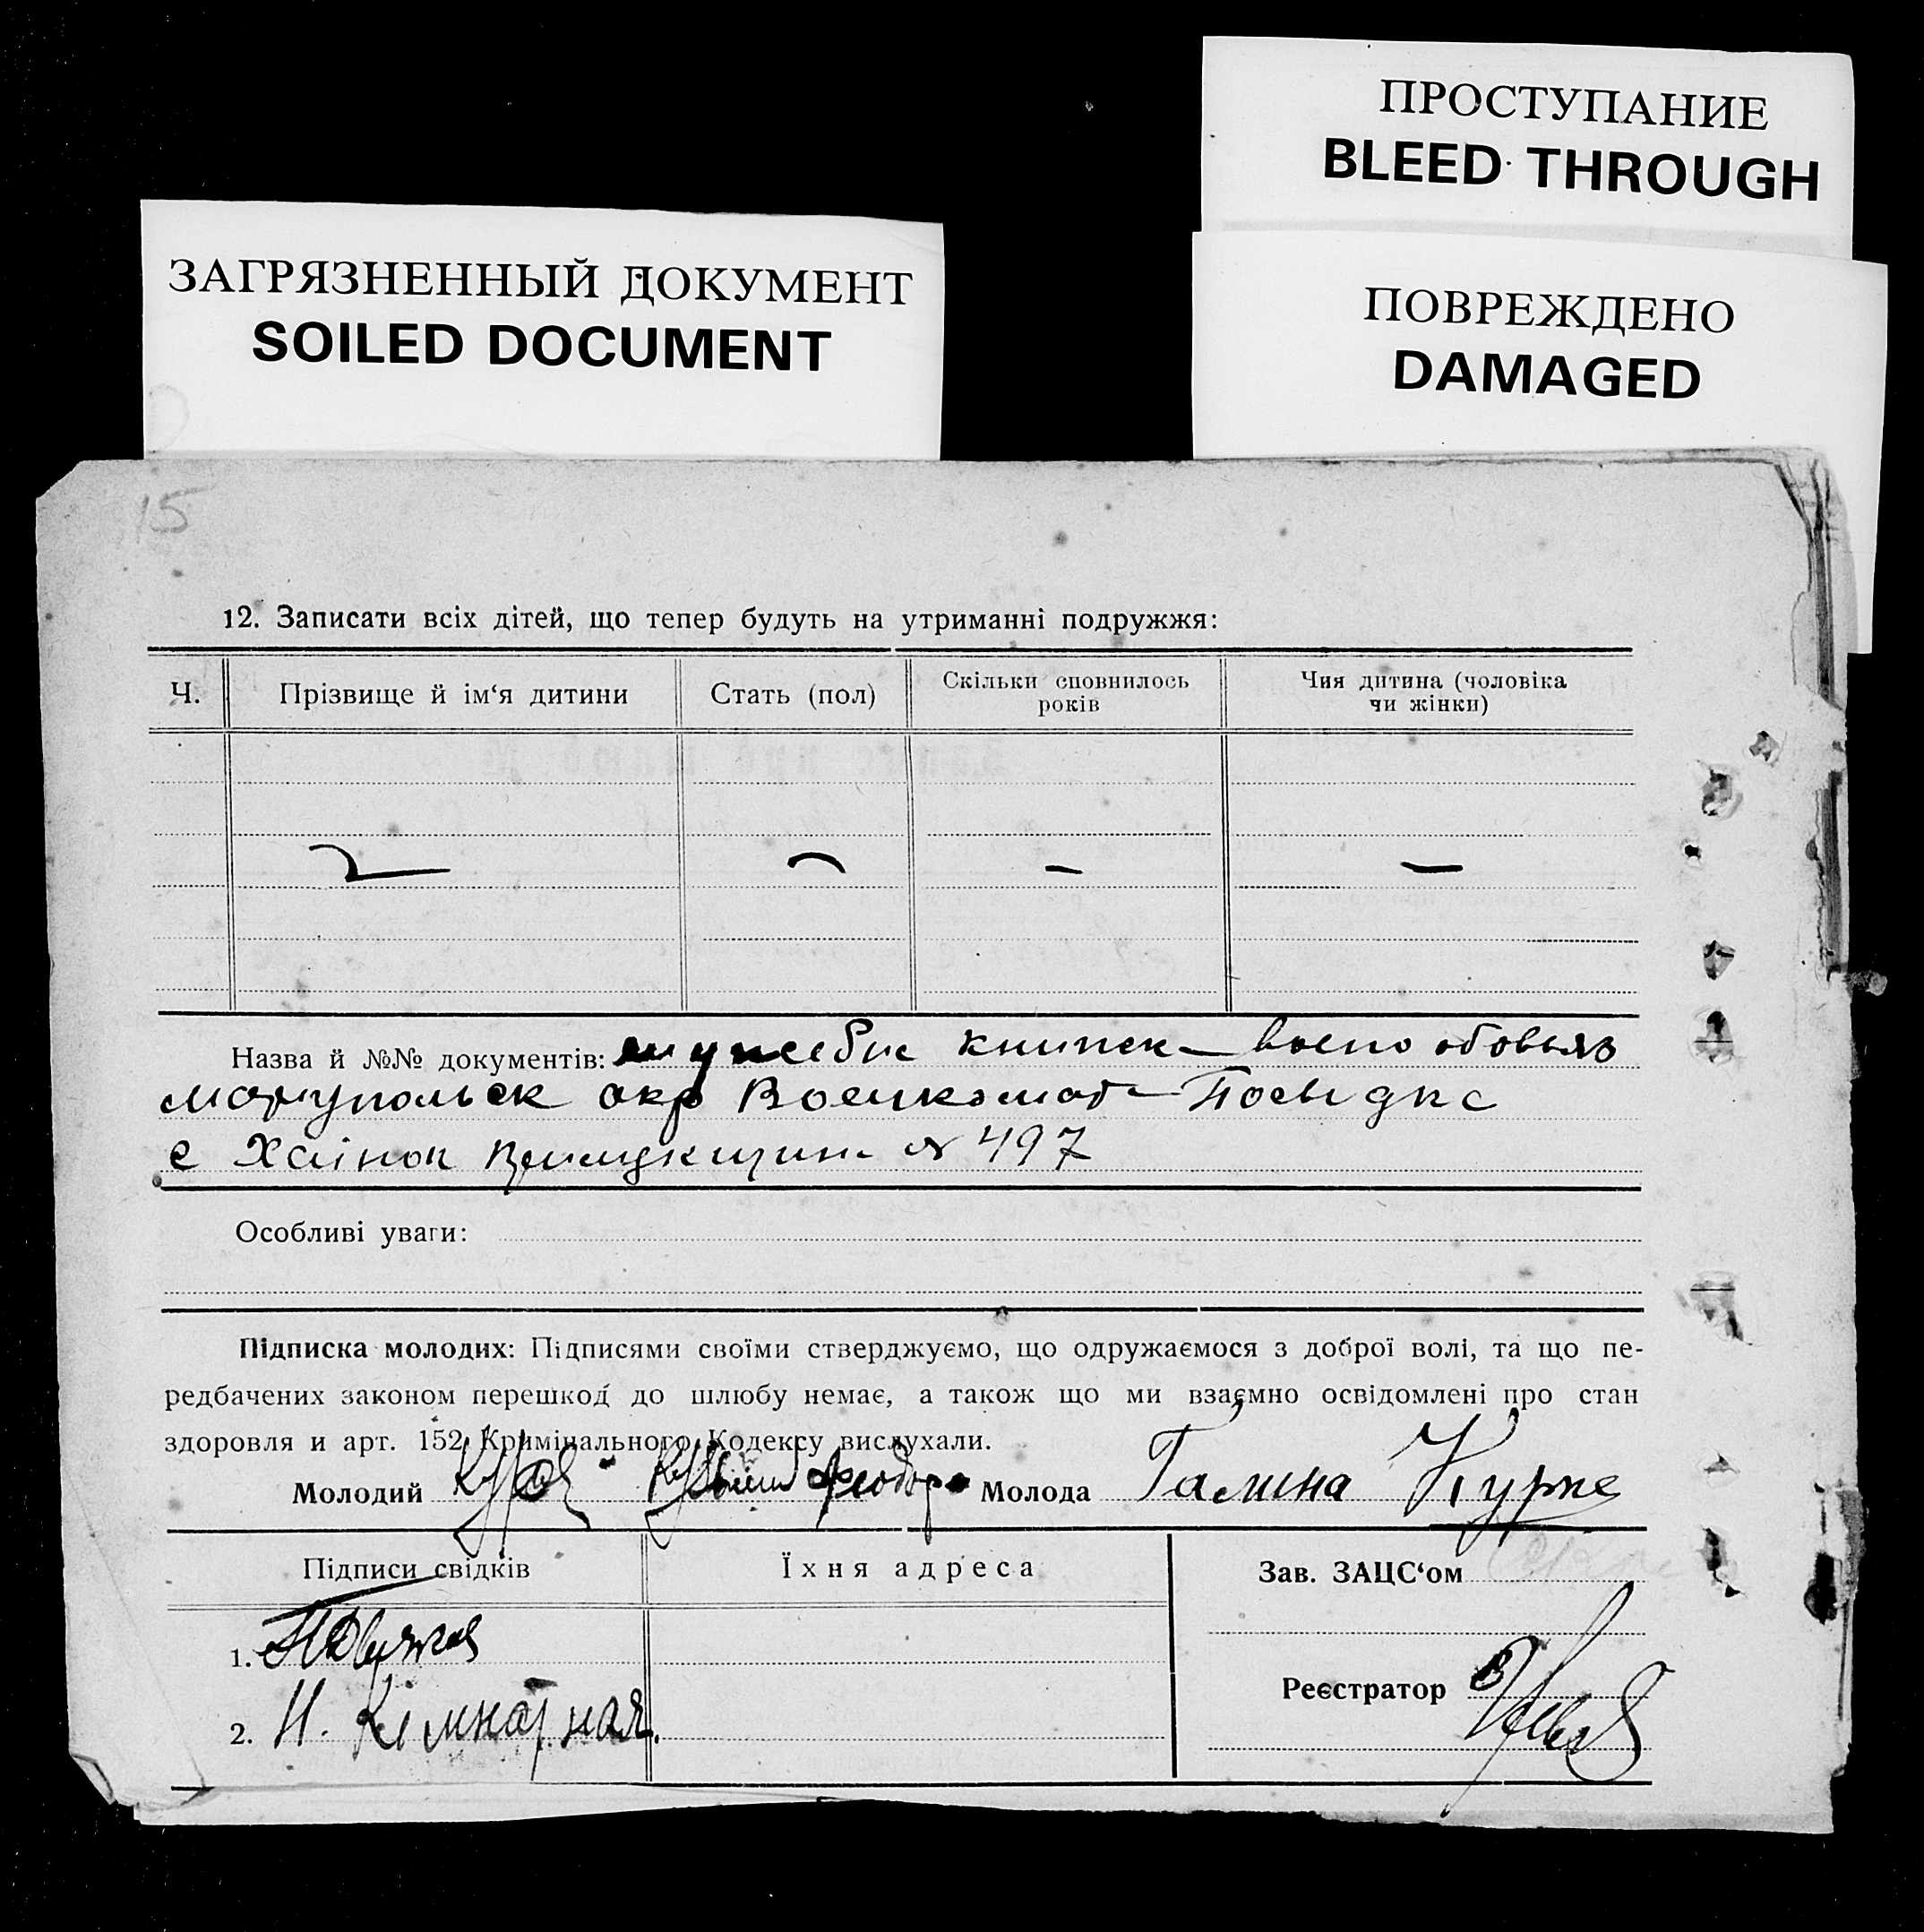 ПРОСТУПАНИЕ
BLEED THROUGH
ЗАГРЯЗНЕННЫЙ ДОКУМЕНТ
SOILED DOCUMENT
ПОВРЕЖДЕНО
DAMAGED
15
12. Записати всіх дітей, що тепер будуть на утриманні подружжя:
Ч. Прізвище й ім‘я дитини Стать (пол) Скільки сповнилось років Чия дитина (чоловіка чи жінки)
Назва й №№ документів: книжек воено обовьяз
окр Военкомат Посьідка
с № 497
Особливі уваги:
Підписка молодих: Підписями своїми стверджуємо, що одружаємося з доброї волі, та що пе-
редбачених законом перешкод до шлюбу немає, а також що ми взаємно освідомлені про стан
здоровля и арт. 152 Кримінального Кодексу вислухали.
Молодий Феодор Молода Галина Курке
Підписи свідків Їхня адреса Зав. ЗАЦС‘ом
1.
Реєстратор
2. Н. Кімнатная.